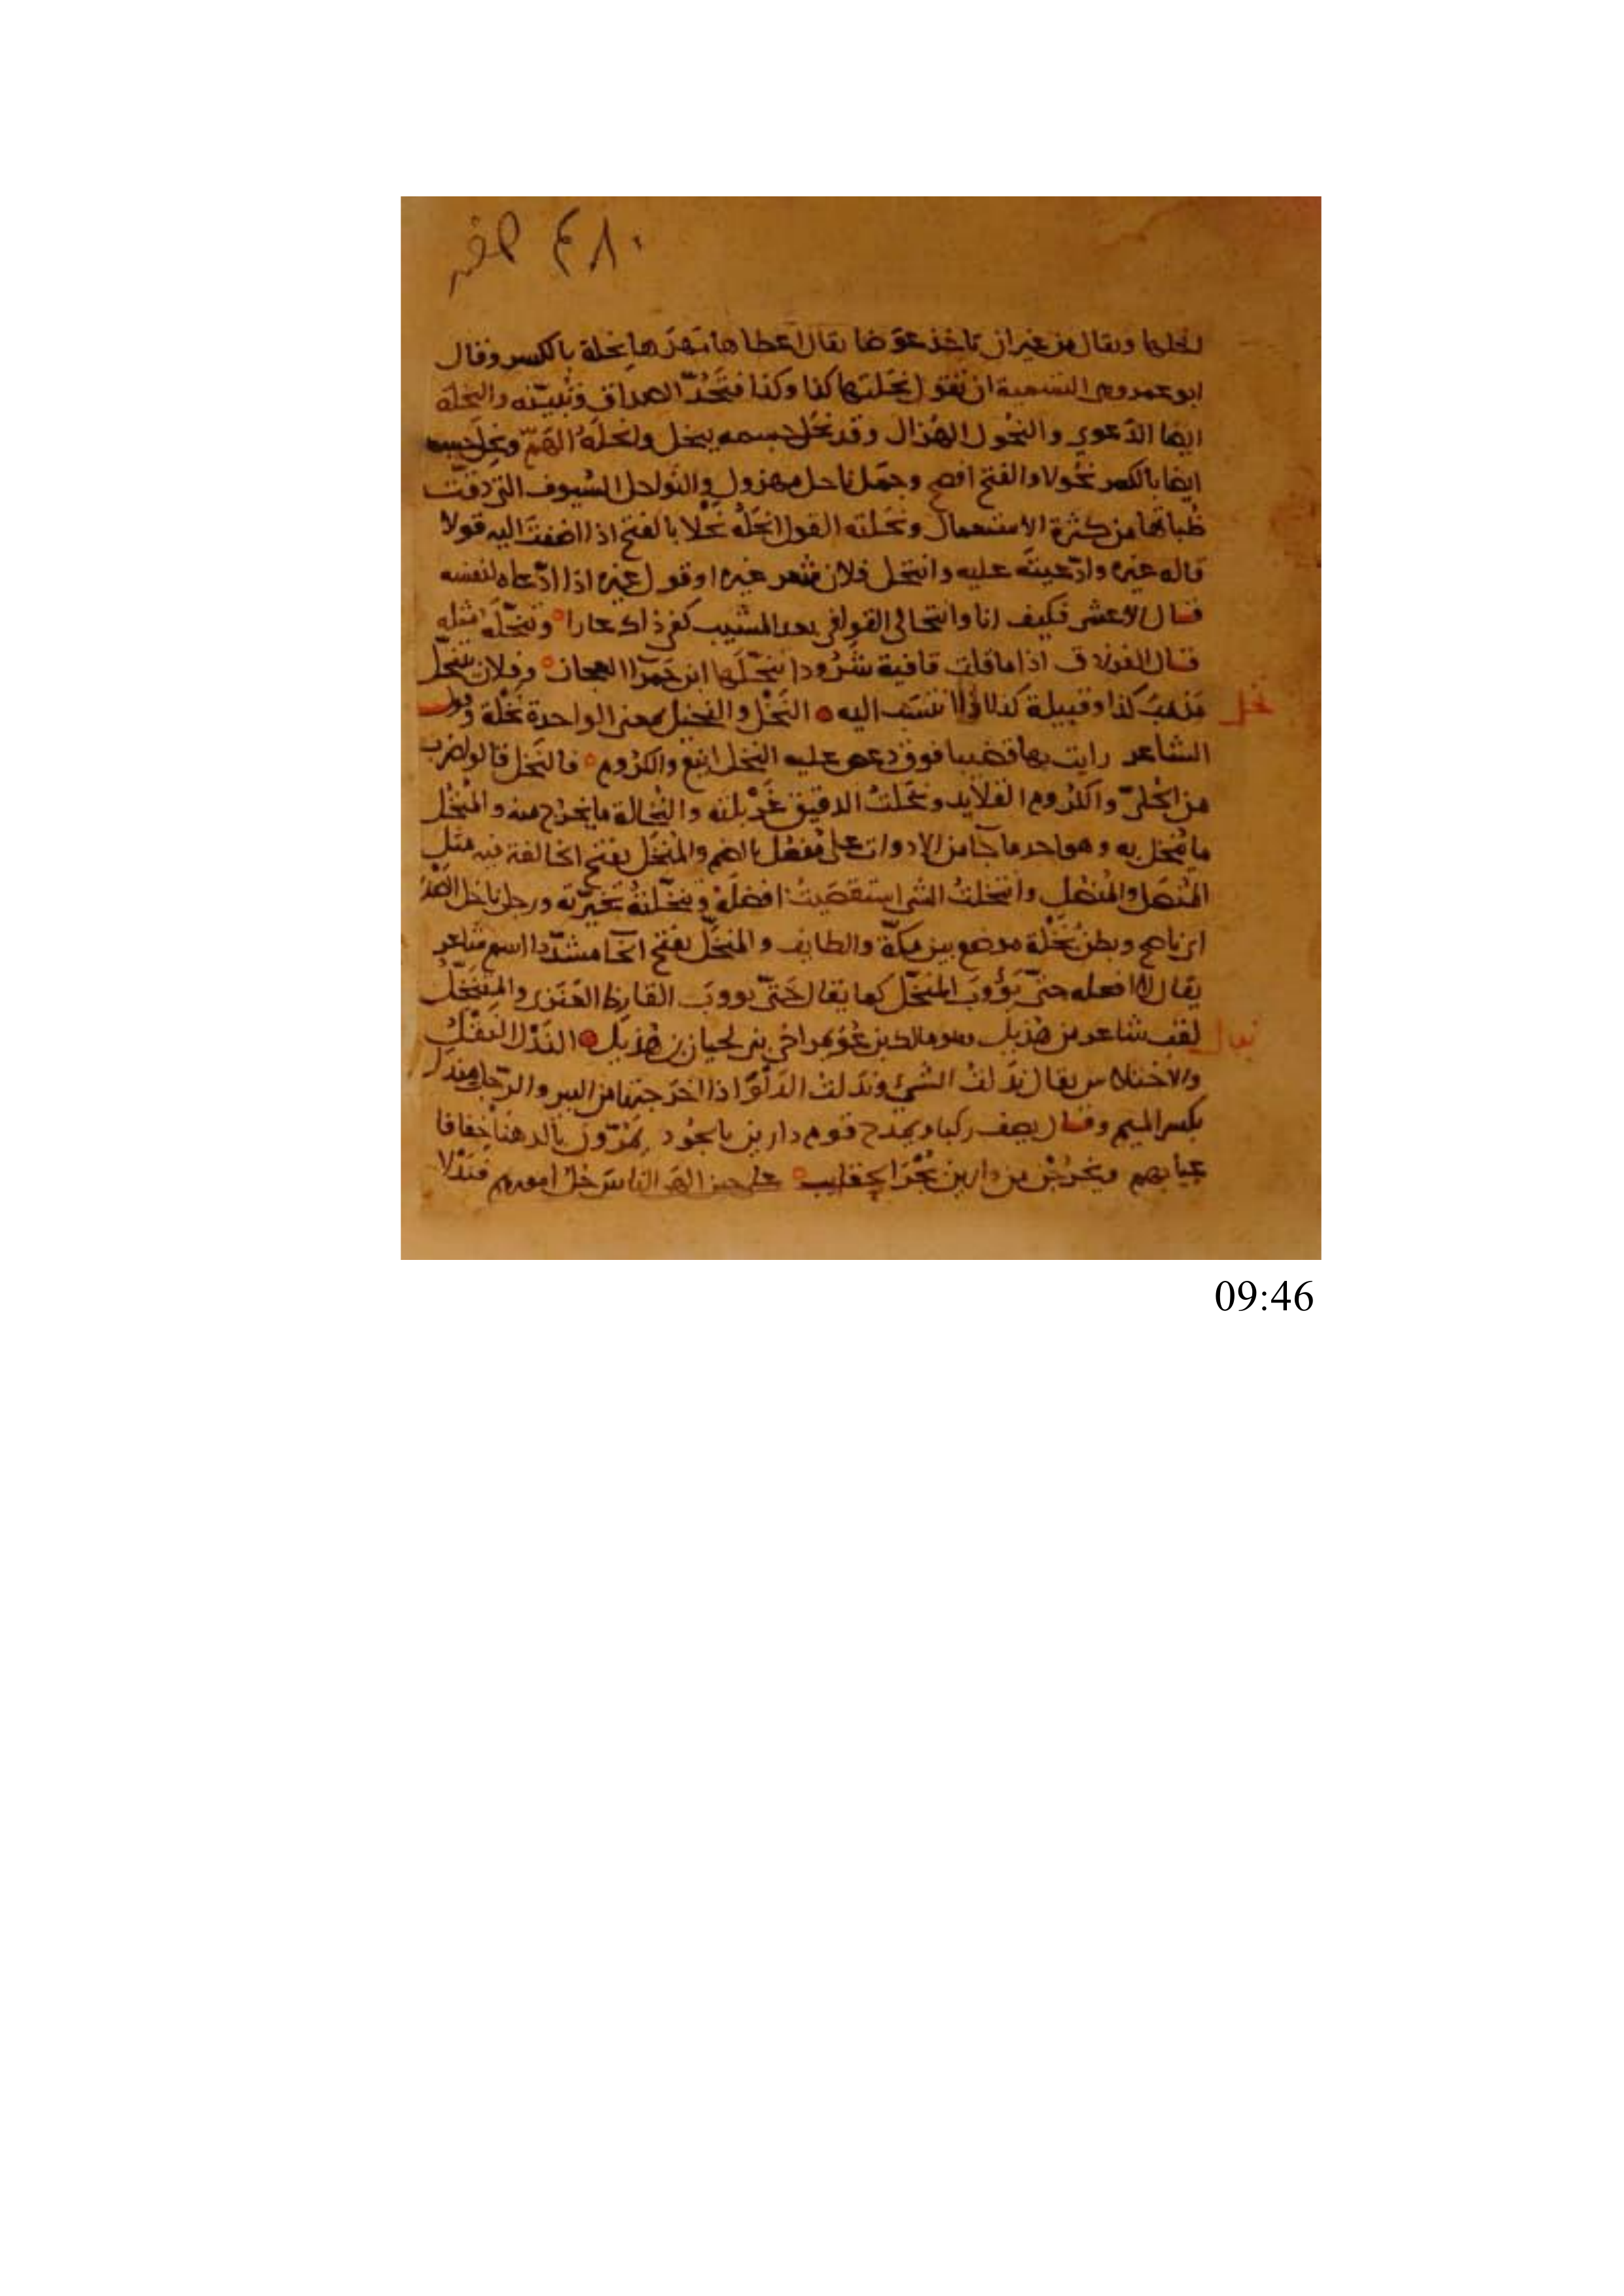 ٤٨٠ صفر
نحلها ويقال من غير ان تاخذ عوَضا يقال اعطاها مَهرَها نِحلة بالكسر وقال
ابو عمرو هى التسمية ان تقول نَحَلتها كذا وكذا فتَحُدّ الصداق وتُبيّنه والنِحْلة
ايضا الدَّعوي والنُحُول الهُزال وقد نحَل جسمه ينحل وانحلَهُ الهَمّ ونحِل جسمه
ايضا بالكسر نُحُولا والفتح افصح وجَمَل ناحل مهزول والنواحل السُيوف التى دقّت
ظُباتها من كثرة الاستعمال ونَحَلته القول انحَلُه نَحْلا بالفتح اذا اضفتَ اليه قولا
قاله غيره وادّعيتَه عليه وانتحل فلان شعر غيره او قول غيره اذا ادّعاه لنفسه
قال الاعشى فكيف انا وانتحالى القوافى بعد المشيب كفى ذاك عارا وتنحّلَه مثله
قال الفرزدق اذا ما قلت قافية شَرُودا تنحّلَها ابن حَمرآ العجان وفلان ينتحل
مَذهبَ كذا وقبيلة كذا اذا انتسَب اليه النَخْل والنخيل بمعنى الواحدة نَخْلة وقول
نخل
الشاعر رايت بها قضيبا فوق دعص عليه النخل اينع والكُرُوم فالنَخل قالوا ضرب
من الحُلىّ والكُرُوم القلايد ونَخَلتُ الدقيق غَرْبلته والنُخالة ما يخرج منه والمُنْخُل
ما يُنخل به وهو احد ما جآ من الادوات على مُفعُل بالضم والمُنخَل بفتح الخا لغة فيه مثل
المُنصَل والمُنصُل وانتخلتُ الشى استقصَيتُ افضلَهُ وتنخّلتهُ تخيّرته ورجل ناخل الصَدْر
اى ناصح وبطنُ نَخْلة موضع بين مكّة والطايف والمنخَّل بفتح الخآ مشدّدا اسم شاعر
يقال لا افعله حتى يؤوبَ المنخّل كما يقال حَتّى يووبَ القارظ العَنَزى والمتنخِّلُ
لقب شاعر من هُذيل وهو مالك بن عُوَيمر اخى بنى لحيان بن هُذيل النَدْل النَقْلُ
ندل
والاختلاس يقال نَدَلتُ الشىءَ وندلتُ الدَلْوَ اذا اخرَجتها من البير والرّجل مِندل
بكسر الميم وقال يصف ركبا ويمدح قوم دارين بالجُود يَمُرّونَ بالدهنا خفافا
عيابهم ويخرُجْنَ من دارين بُجْرَ الحقايب على حين الهى الناسَ جُلّ امورهم فندْلا
09:46